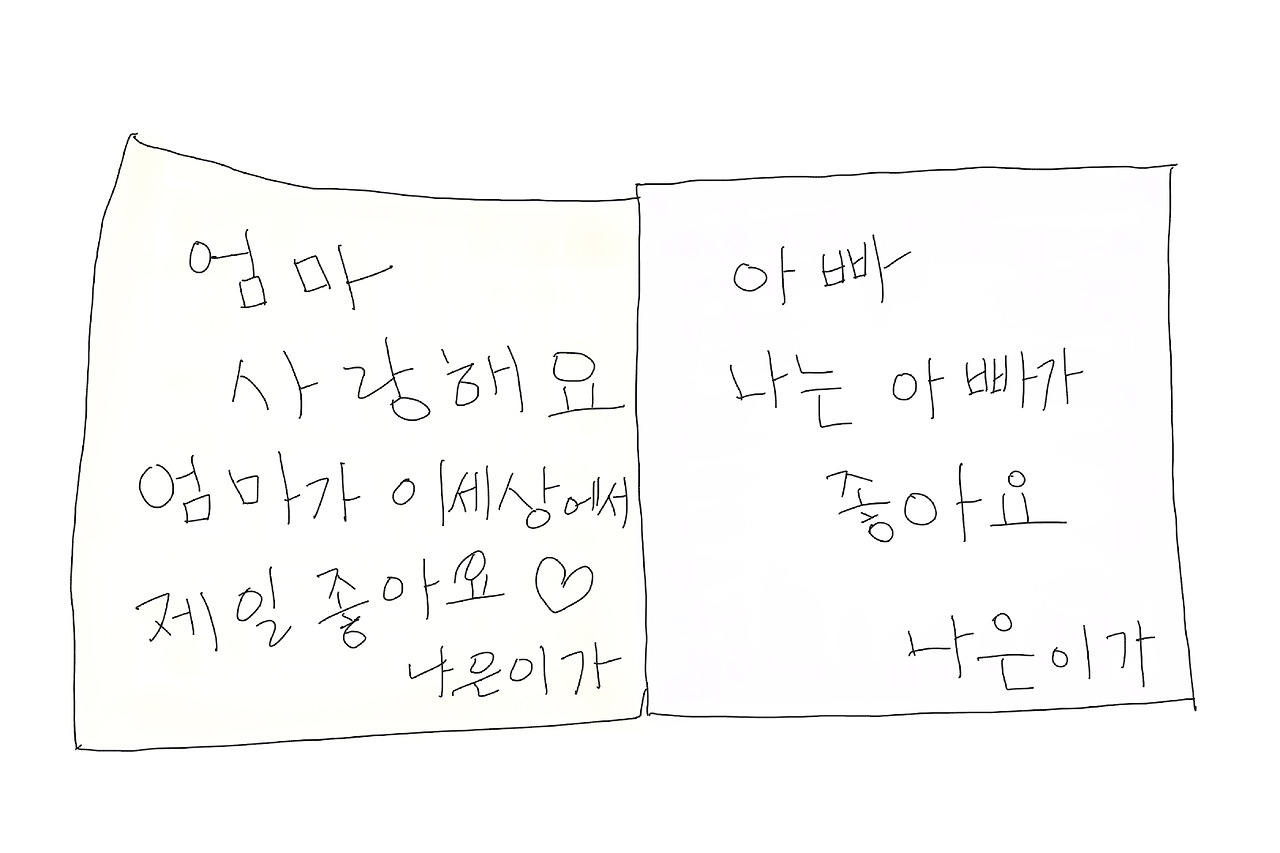 엄마
사랑해요
엄마가 이세상에서
제일 좋아요 ♡
나은이가
아빠
나는 아빠가
좋아요
나은이가